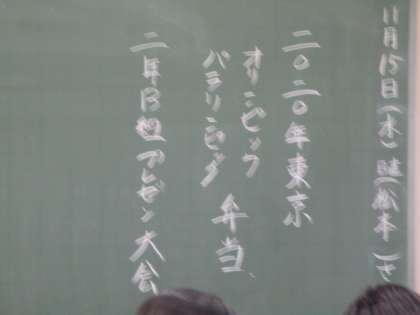 11月15日(木) 松本
二〇二〇年東京
オリンピック
パラリンピック
弁当
二年B組プレゼン大会